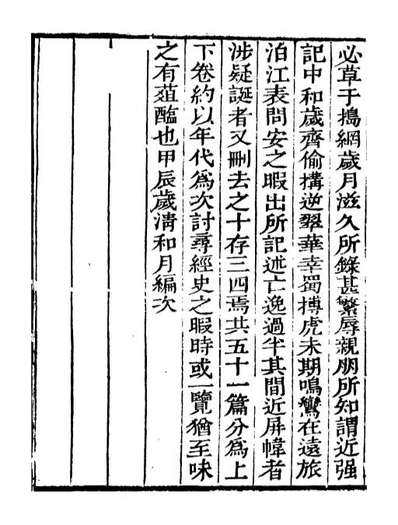 必草于搗網歲月滋久所錄甚繁辱親朋所知謂近强
記中和歲齊偷搆逆翠華幸蜀搏虎未期鳴鸞在遠旅
泊江表問安之暇出所記述亡逸過半其間近屏幃者
涉疑誕者又刪去之十存三四焉共五十一篇分爲上
下卷約以年代爲次討尋經史之暇時或一覽猶至味
之有葅醢也甲辰歲淸和月編次